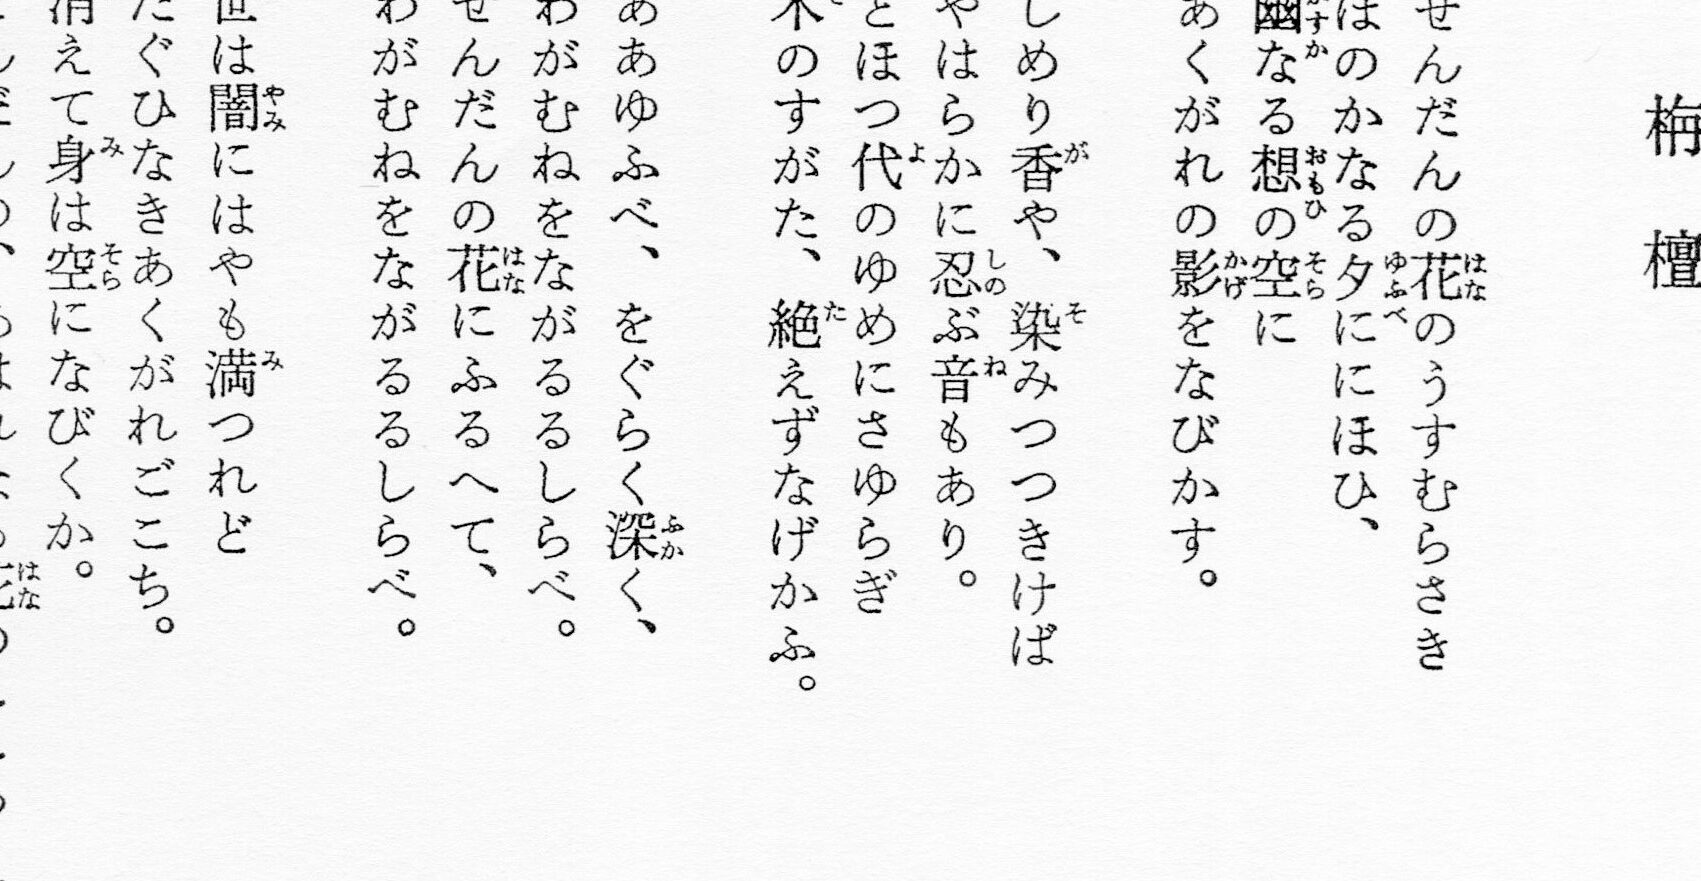 栴檀
せんだんの花のうすむらさき
ほのかなる夕ににほひ、
幽なる想の空に
あくがれの影をなびかす。
しめり香や、染みつつきけば
やはらかに忍ぶ音もあり。
とほつ代のゆめにさゆらぎ
木のすがた、絶えずなげかふ。
ああゆふべ、をぐらく深く、
わがむねをながるるしらべ。
せんだんの花にふるへて、
わがむねをながるるしらべ。
世は闇にはやも満つれど
たぐひなきあくがれごこち。
消えて身は空になびくか。